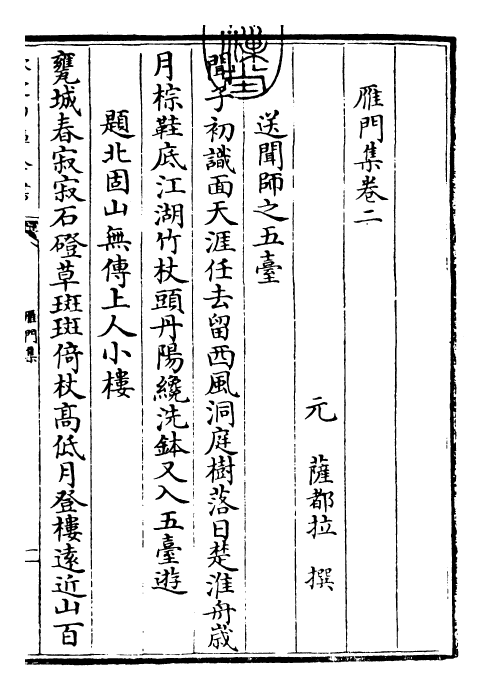 雁門集卷二
元 薩都拉 撰
送聞師之五臺
聞子初識面天涯任去留西風洞庭樹落日楚淮舟歳
月棕鞋底江湖竹杖頭丹陽纔洗鉢又入五臺遊
題北固山無傳上人小樓
甕城春寂寂石磴草斑斑倚杖髙低月登樓逺近山百
雁門集
一